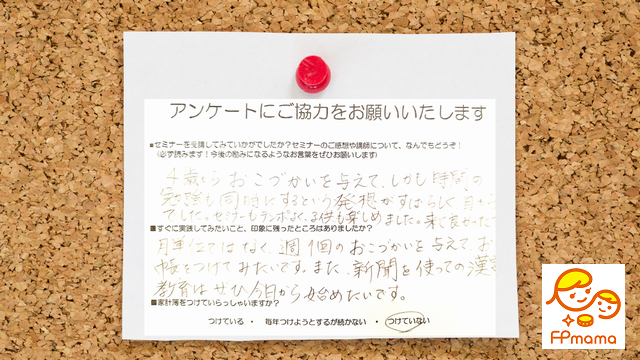 アンケートにご協力をお願いいたします
■セミナーを受講してみていかがでしたか?セミナーのご感想や講師について、なんでもどうぞ!
(必ず読みます!今後の励みになるようなお言葉をぜひお願いします)
4歳からおこづかいを与えて、しかも時間の
勉強も同時にするという発想がすばらしく目
でした。セミナーもテンポよく、子供も楽しめました。来て良かった
■すぐに実践してみたいこと、印象に残ったところはありましたか?
月単位ではなく、週1回のおこづかいを与えて、お
帳をつけてみたいです。また、新聞を使っての漢字
教育はぜひ今日から始めたいです。
■家計簿をつけていらっしゃいますか?
つけている ・ 毎年つけようとするが続かない ・ つけていない
FPmama